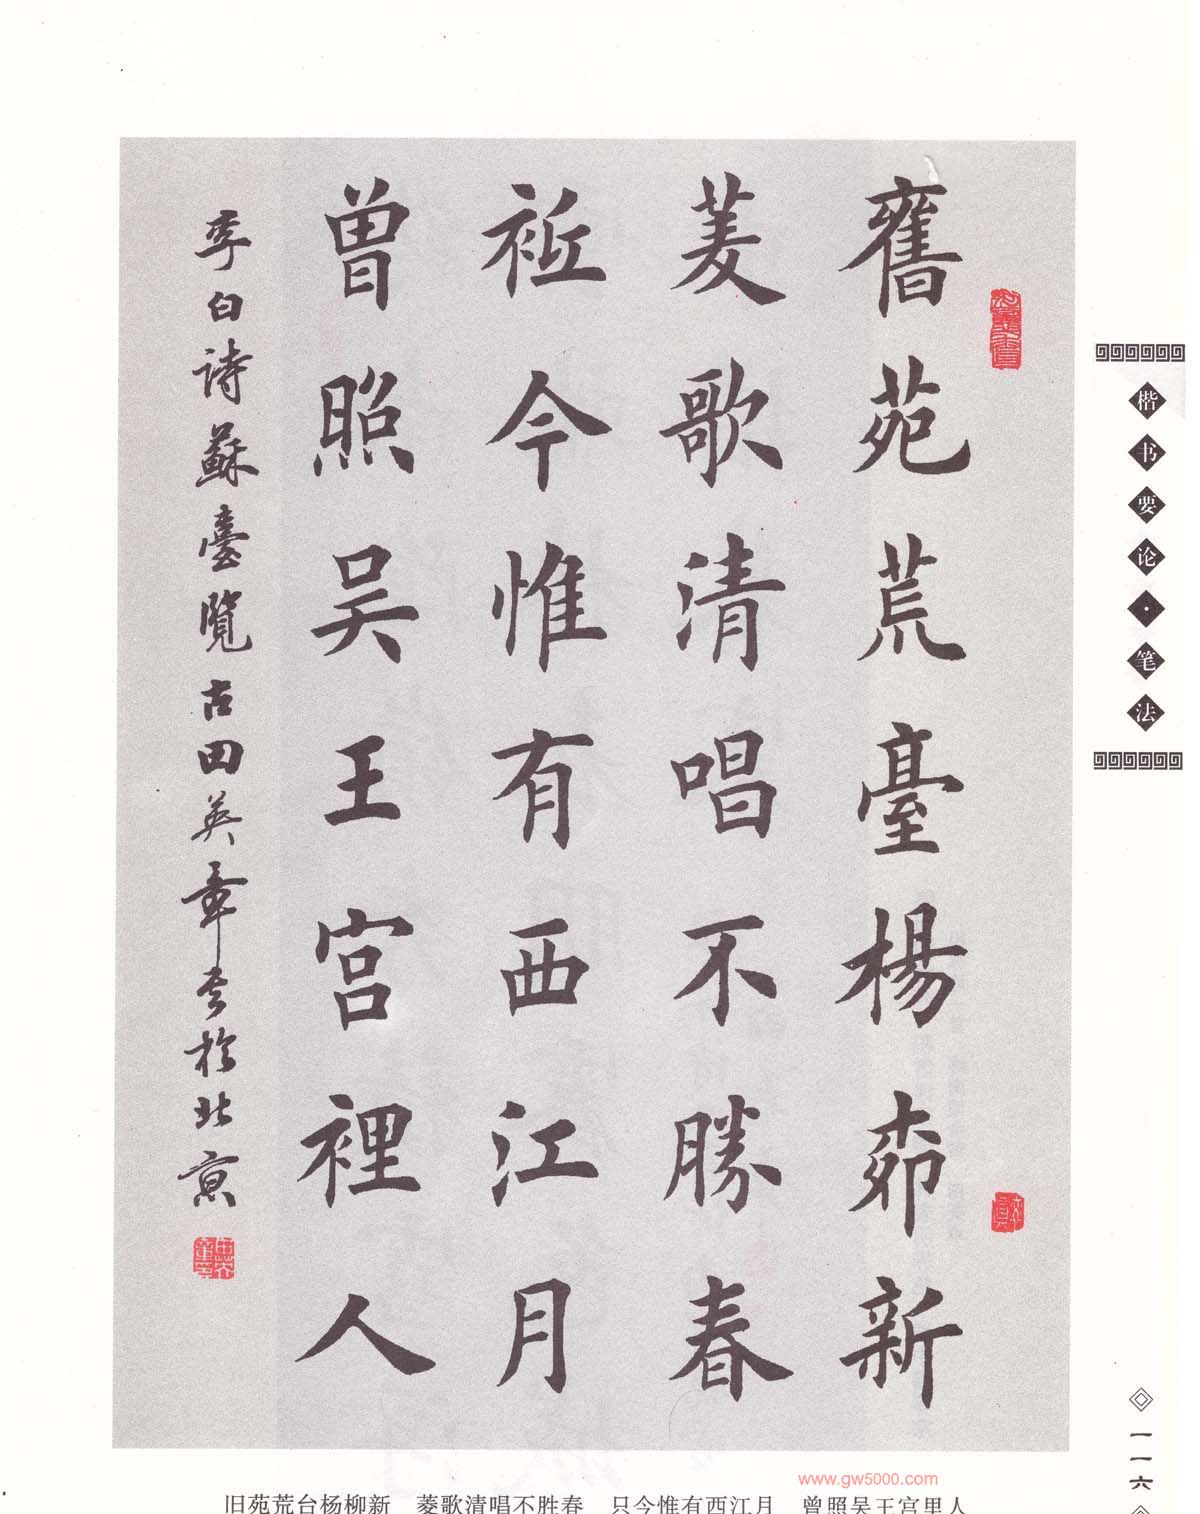 舊苑荒臺楊桺新
菱歌清唱不勝春
祗今惟有西江月
曾照吴王宫裡人
李白詩蘇臺覽古田英章书於北京
楷书要论·笔法
一一六
www.gw5000.com
旧苑荒台杨柳新 菱歌清唱不胜春 只今惟有西江月 曾照吴王宫里人